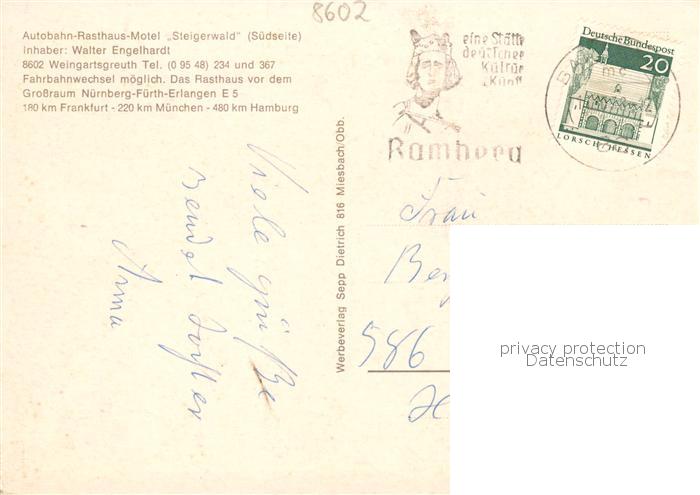 8602
Autobahn-Rasthaus-Motel „Steigerwald" (Südseite)
Inhaber: Walter Engelhardt
8602 Weingartsgreuth Tel. (0 95 48) 234 und 367
Fahrbahnwechsel möglich. Das Rasthaus vor dem
Großraum Nürnberg-Fürth-Erlangen E 5
180 km Frankfurt - 220 km München - 480 km Hamburg
eine Stätte
deutscher
Kultur
u.Kunst
Bamberg
Deutsche Bundespost
20
LORSCH/HESSEN
Werbeverlag Sepp Dietrich 816 Miesbach/Obb.
Viele grüße
sendet
Anna
Frau
586
privacy protection
Datenschutz